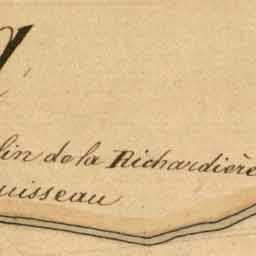 lin de la Richardière
uisseau